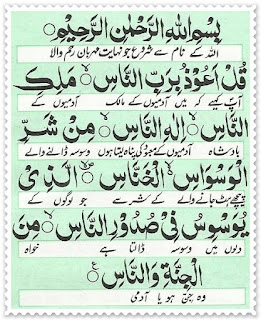 بِسْمِ اللّٰهِ الرَّحْمٰنِ الرَّحِيْمِ
اللہ کے نام سے شروع جو نہایت مہربان رحم والا
قُلْ اَعُوْذُ بِرَبِّ النَّاسِۙ مَلِكِ
آپ کہیے کہ میں آدمیوں کے مالک آدمیوں کے
النَّاسِۙ اِلٰهِ النَّاسِۙ مِنْ شَرِّ
بادشاہ آدمیوں کے معبود کی پناہ لیتا ہوں وسوسہ ڈالنے والے
الْوَسْوَاسِ ۙ الْخَنَّاسِ ۪ۙ الَّذِيْ
پیچھے ہٹ جانے والے کے شر سے جو لوگوں کے
يُوَسْوِسُ فِيْ صُدُوْرِ النَّاسِۙ مِنَ
دلوں میں وسوسہ ڈالتا ہے خواہ
الْجِنَّةِ وَالنَّاسِ ع
وہ جن ہو یا آدمی